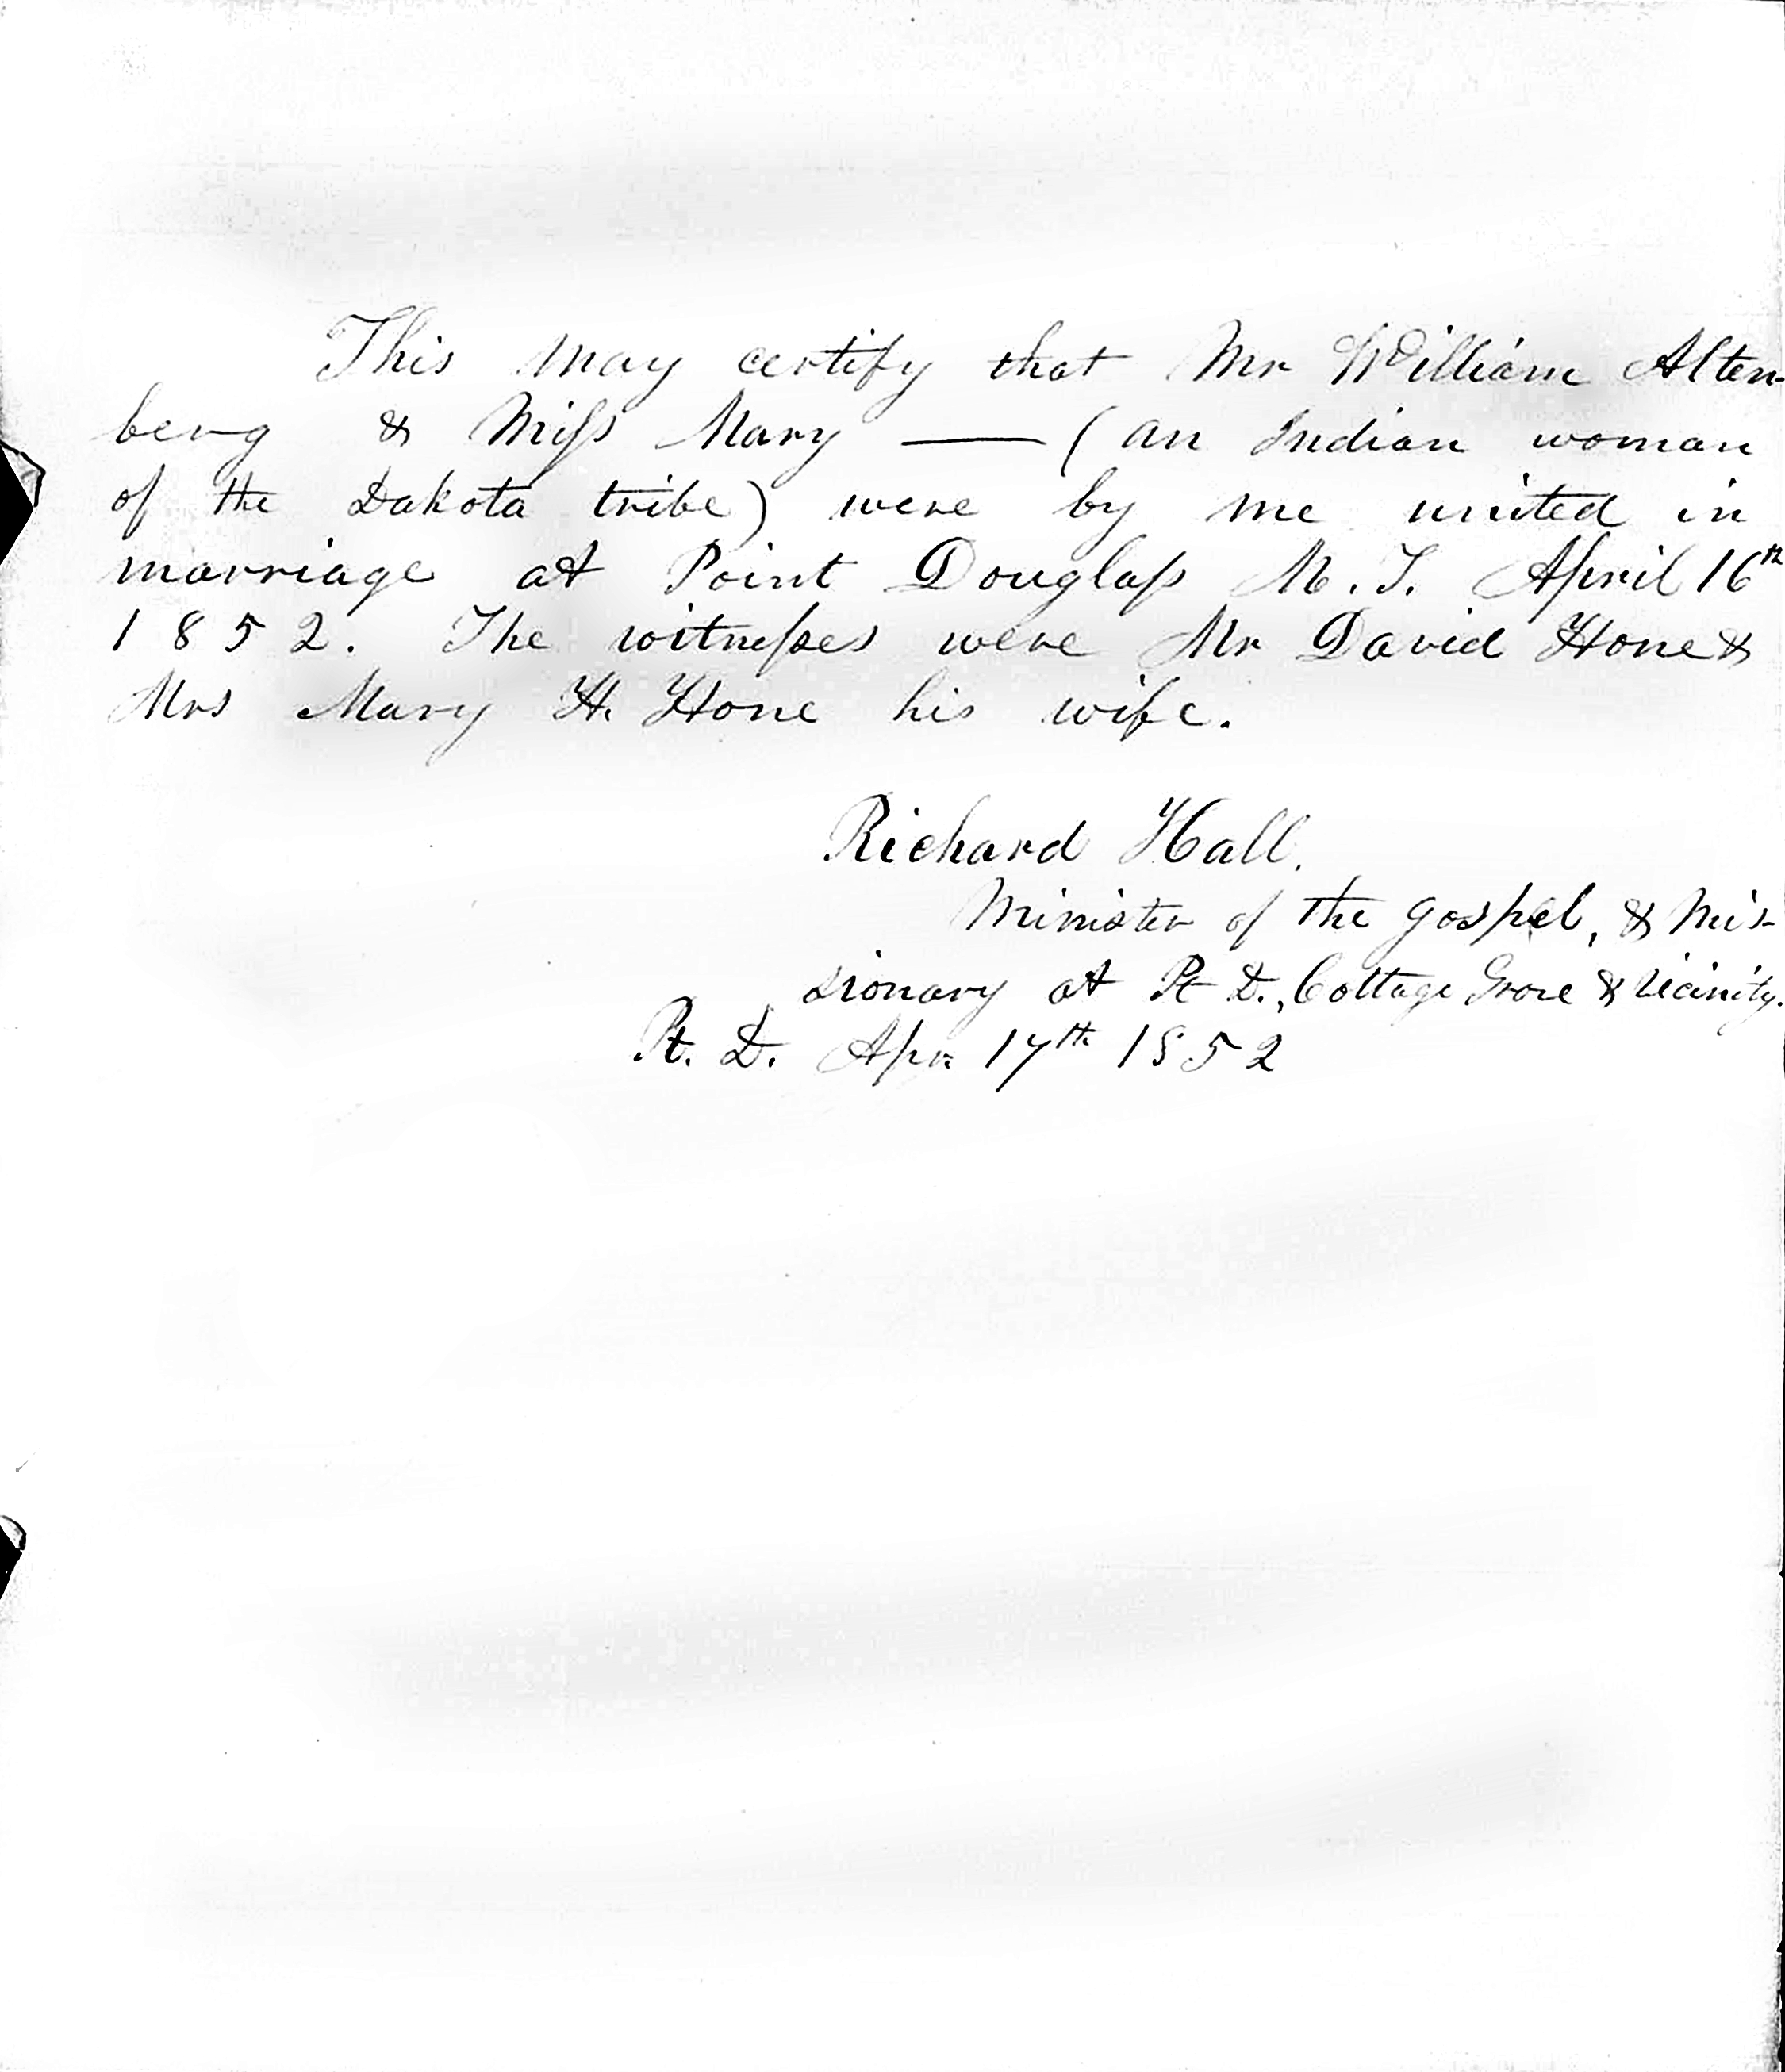 This may certify that Mr William Alten-
berg & Miſs Mary —— (an Indian woman
of the Dakota tribe) were by me united in
marriage at Point Douglaſs M. T. April 16th
1852. The witneſses were Mr David Hone &
Mrs Mary H. Hone his wife.
Richard Hall.
Minister of the gospel, & Mis-
sionary at Pt D., Cottage Grove & Vicinity.
Pt. D. Apr 17th 1852